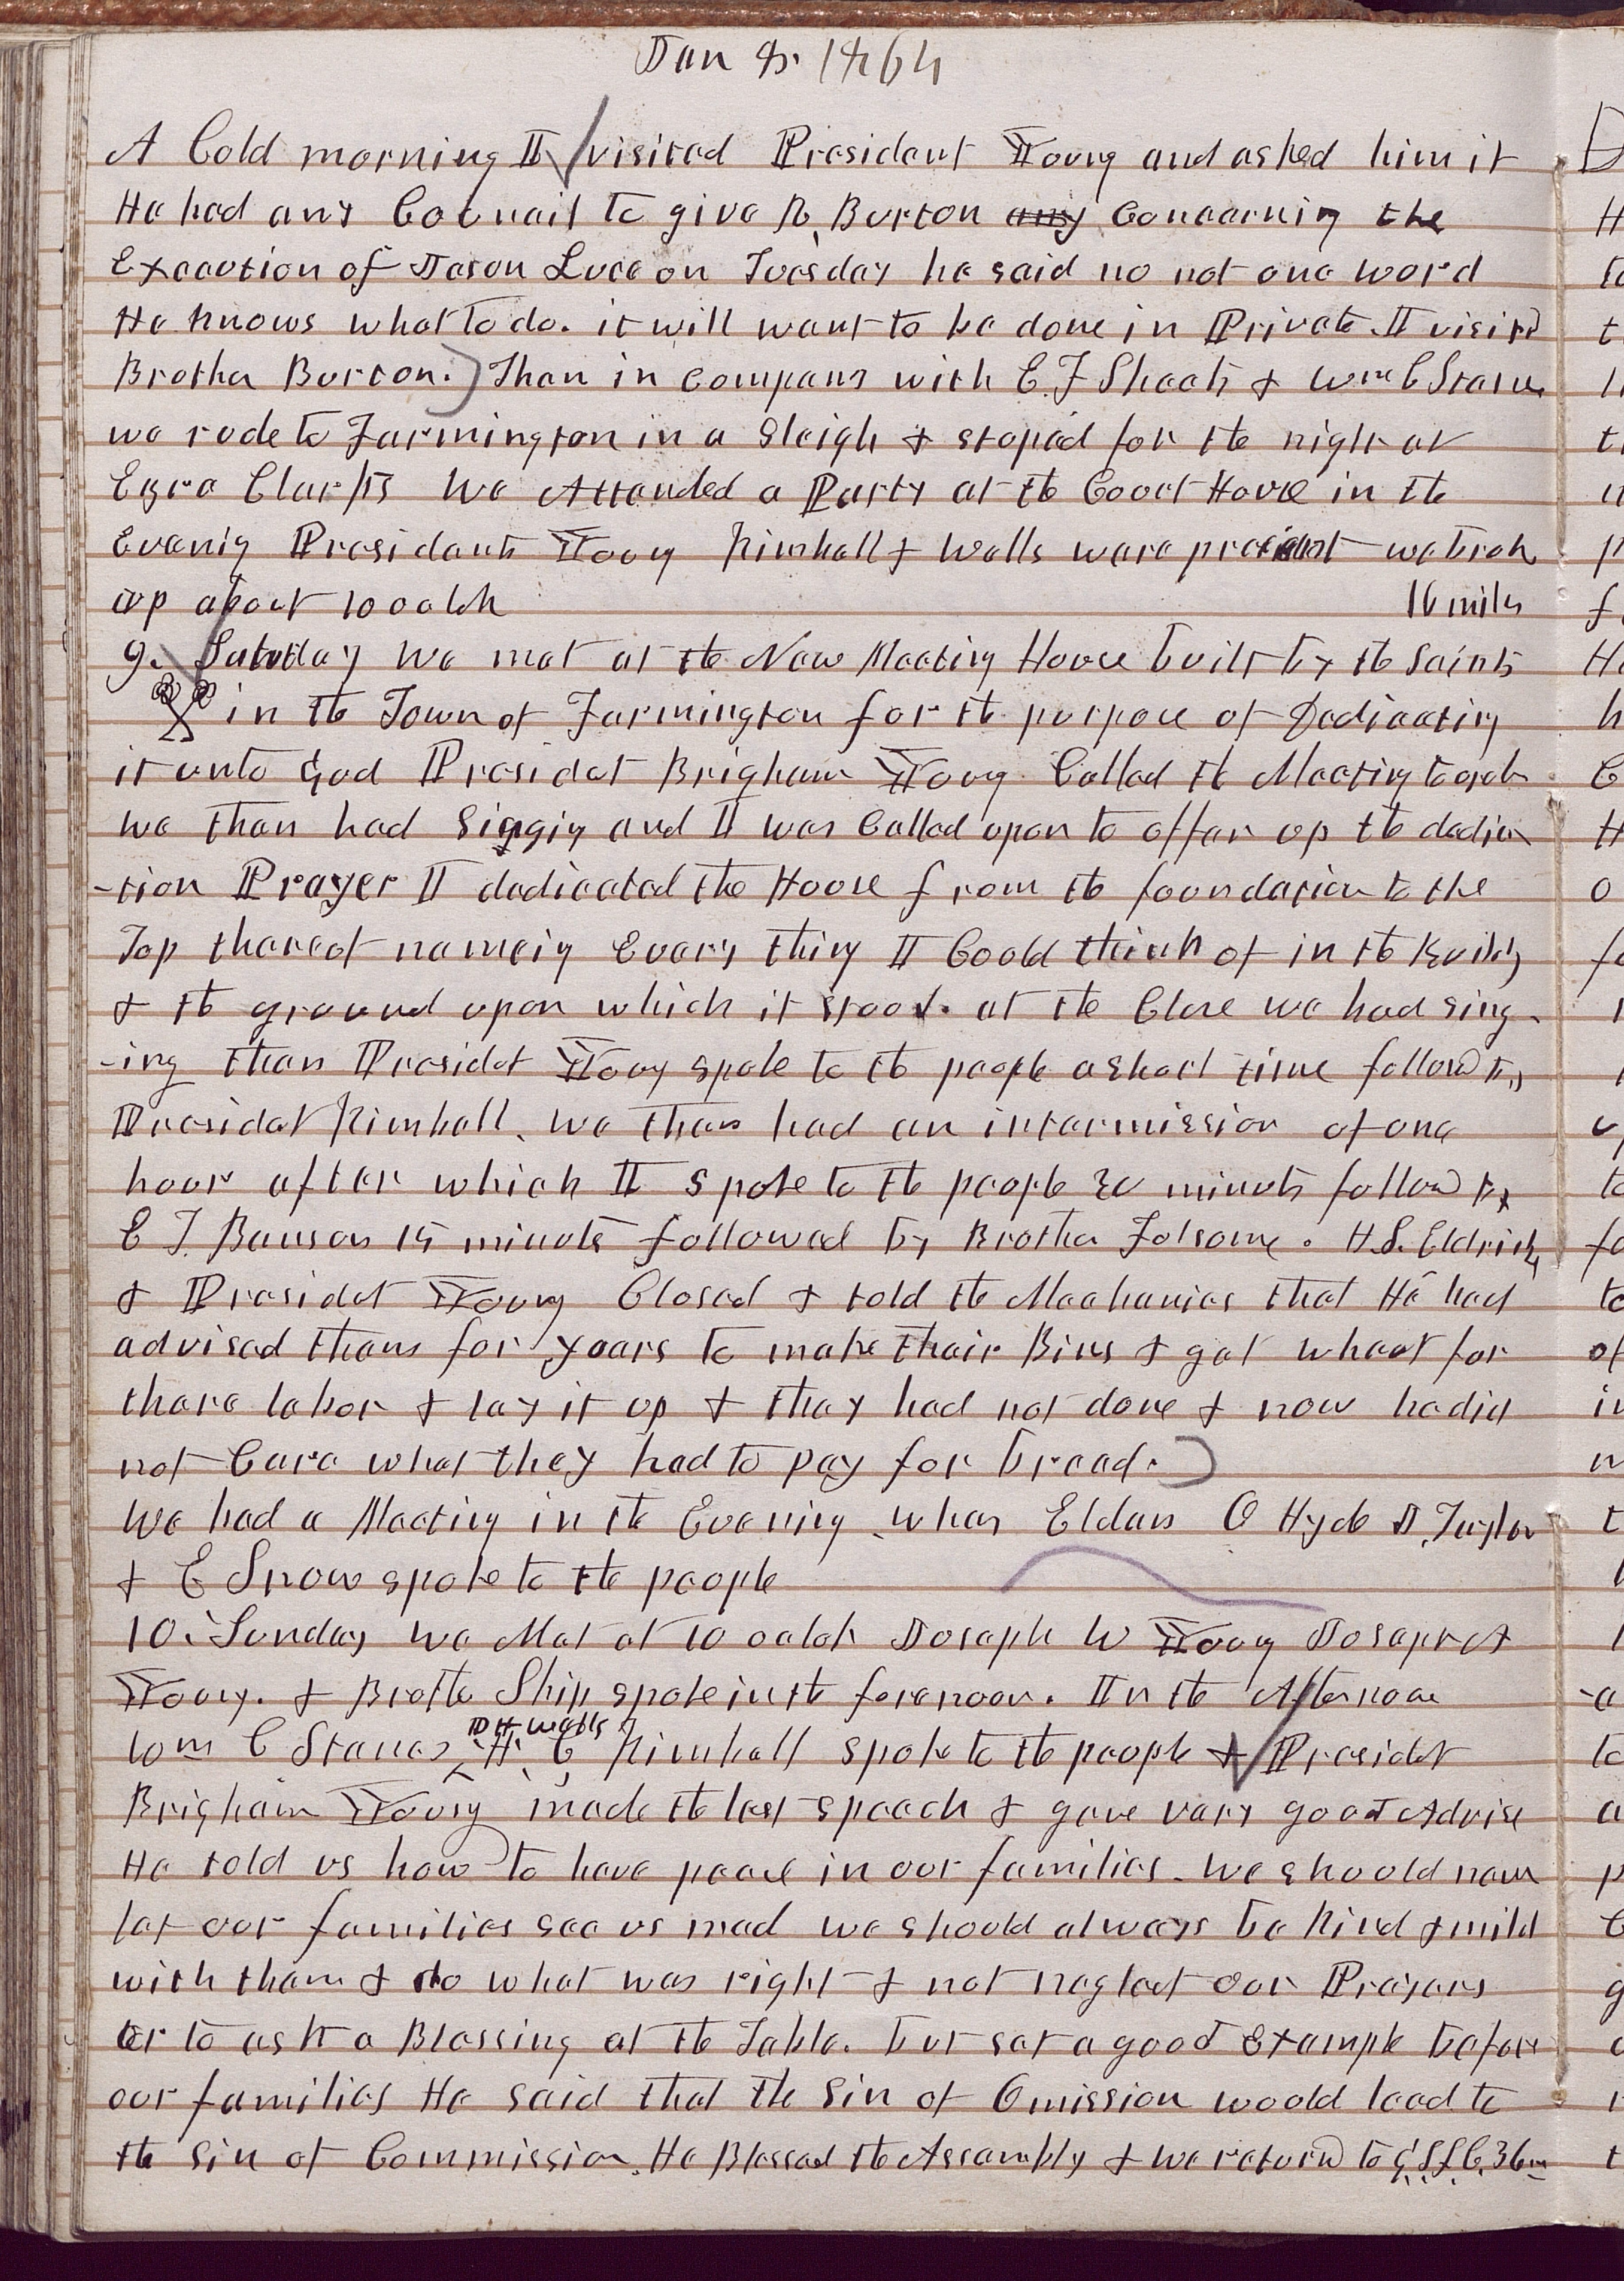 Jan 8. 1864
A Cold morning I visited President Young and asked him if
He had any Councail to give R. Burton any Concerning the
Execution of Jason Luce on Tuesday he said no not one word
He knows what to do. it will want to be done in Private. I visited
Brother Burton. Then in company with E. F Sheets & Wm C Staines
we rode to Farmington in a Sleigh & stoped for the night at
Ezra Clarks We Attended a Party at the Court House in the
Evenig Presidents Young Kimball & Wells were present we broke
up about 10 oclok 16 miles
9. Saturday We met at the New Meeting House built by the Saints
in the Town of Farmington for the purpose of Dedicating
it unto God Presidet Brigham Young Called the Meeting to order
we then had Singgig and I was Called upon to offer up the dedica
-tion Prayer I dedicated the House from the foundation to the
Top thereof nameig Every thing I Could think of in the Building
& the ground upon which it stood. at the Close we had sing-
-ing then Presidet Young spoke to the people a short time followed by
Presidet Kimball. we then had an intermission of one
hour after which I spoke to the people 30 minuts followed by
E T. Benson 15 minuts followed by Brother Folsome. H. S. Eldridg
& Presidet Young Closed & told the Mechanics that He had
advised them for years to make their Bins & get wheat for
there labor & lay it up & they had not done & now he did
not Care what they had to pay for bread.
We had a Meeting in the Evening when Elders O Hyde J. Taylor
& E Snow spoke to the people
10. Sunday we Met at 10 oclok Joseph W Young Joseph A
Young. & Brother Ship spoke in the forenoon. In the Afternoon
Wm C Staines D H Wells H. C. Kimball spoke to the people & Presidet
Brigham Young made the last speech & gave very good Advise
He told us how to have peace in our families. we should never
let our families see us mad we should always be kind & mild
with them & do what was right & not neglect our Prayers
or to ask a Blessing at the Table. but set a good Example before
our families He said that the Sin of Omission would lead to
the Sin of Commission. He Blessed the Assembly & we returned to G. S. L. C. 36 m